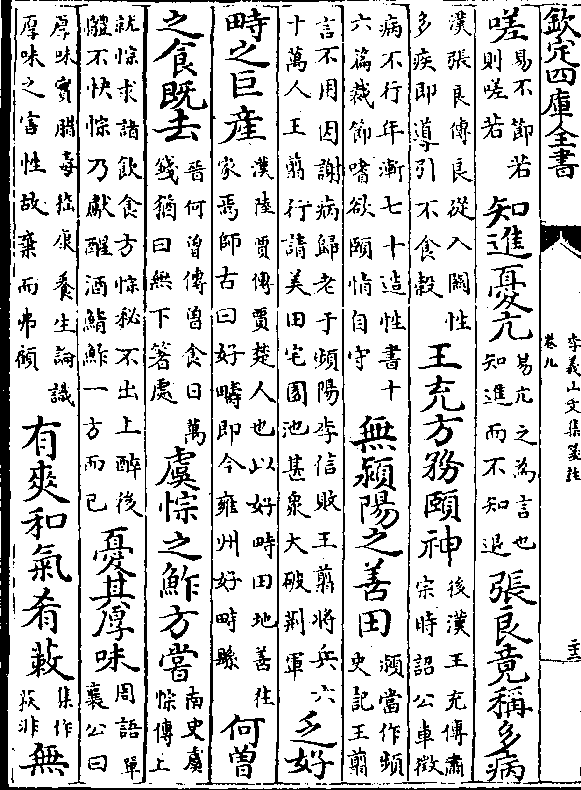 欽定四庫全書
李義山文集箋註
卷九
嗟易不節若則嗟若知進憂亢易亢之為言也知進而不知退張良竟稱多病
漢張良傳良從入關性多疾即導引不食穀王充方務頤神後漢王充傳肅宗時詔公車徵
病不行年漸七十造性書十六篇裁節嗜欲頤情自守無潁陽之善田潁當作頻史記王翦
言不用因謝病歸老于頻陽李信敗王翦將兵六十萬人王翦行請美田宅園池甚衆大破荆軍乏好
畤之巨産漢陸賈傳賈楚人也以好畤田地善往家焉師古曰好畤即今雍州好畤縣何曾
之食既去晉何曾傳曾食日萬錢猶曰無下箸處虞悰之鮓方嘗南史虞悰傳上
就悰求諸飲食方悰秘不出上醉後體不快悰乃獻醒酒鯖鮓一方而已憂其厚味周語單襄公曰
厚味實腊毒嵇康養生論識厚味之害性故棄而弗顧有爽和氣肴蔌集作非無